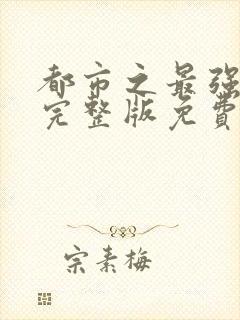 都市之最强
完整版免费
宗素梅